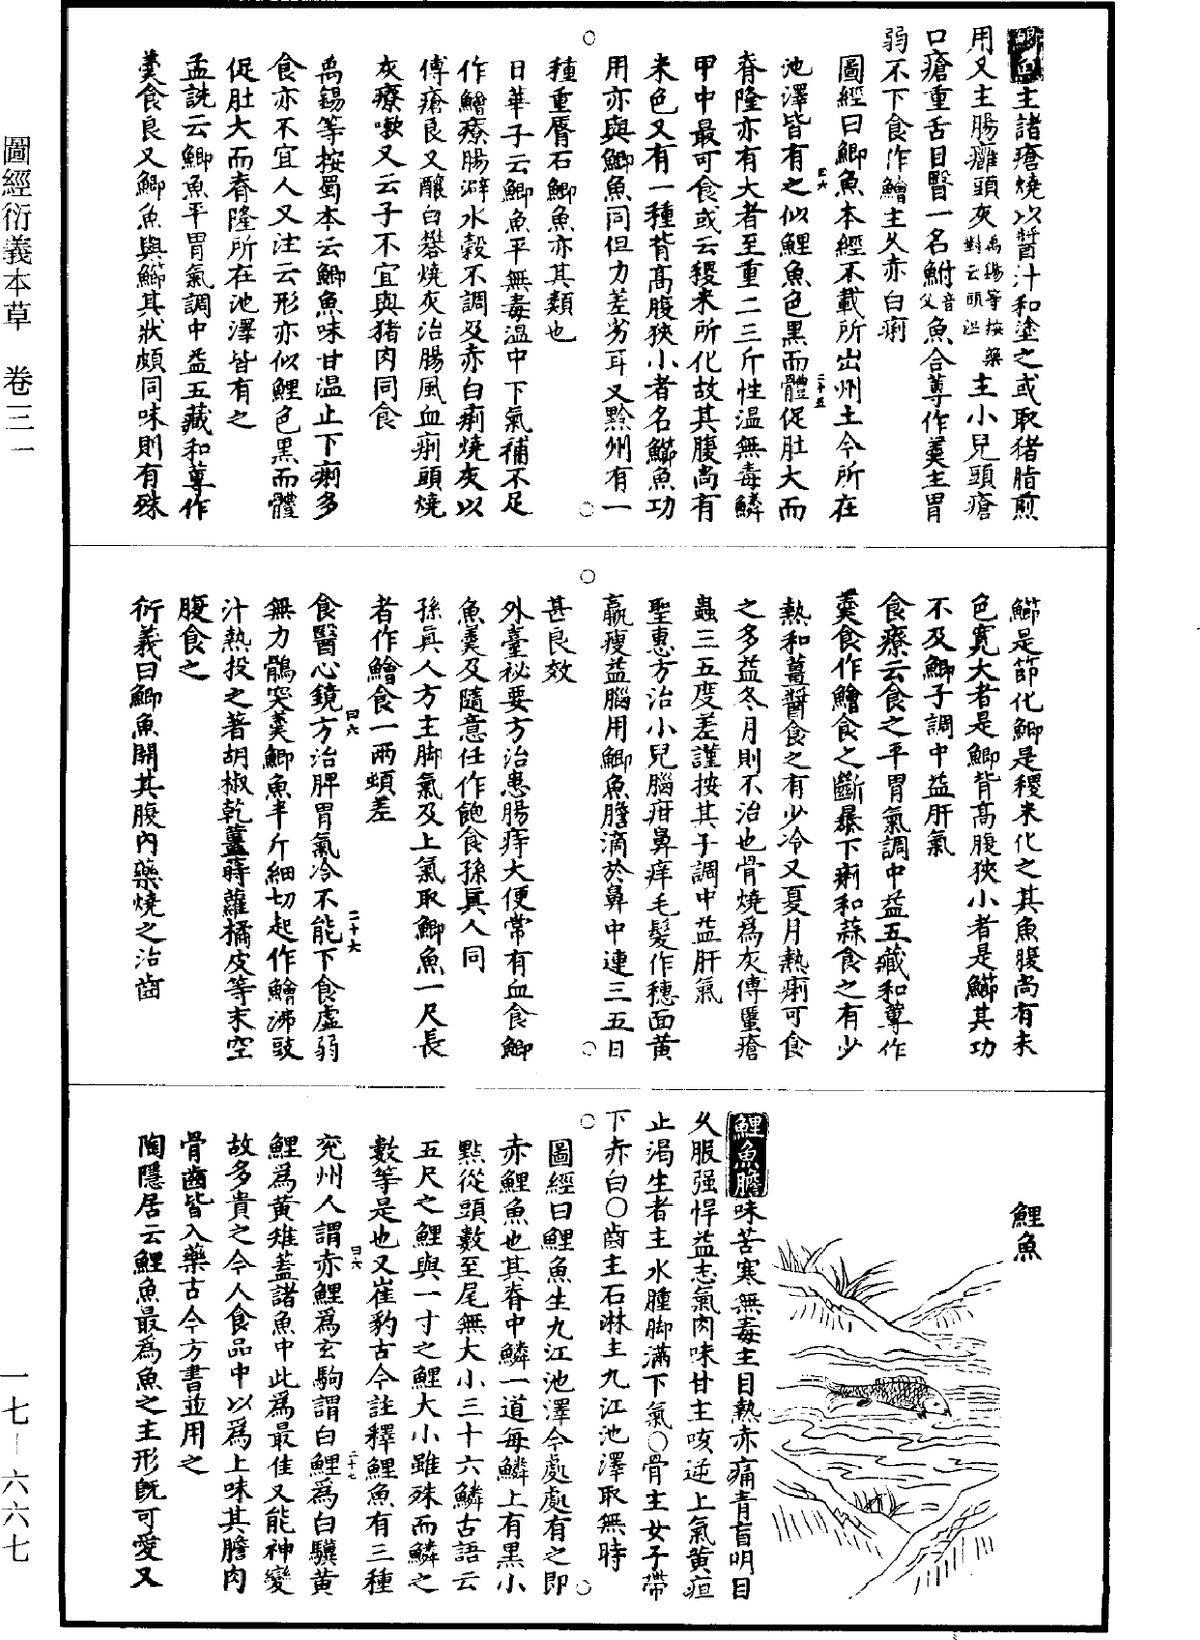 鯽魚主諸瘡燒以醬汁和塗之或取猪脂煎
用又主腸癰頭灰禹錫等按藥對云頭溫主小兒頭瘡
口瘡重舌目瞖一名鮒音父魚合蓴作羹主胃
弱不下食作鱠主久赤白痢
圖經曰鯽魚本經不載所出州土今所在
池澤皆有之似鯉魚色黑而體促肚大而
脊隆亦有大者至重二三斤性温無毒鱗
甲中最可食或云稷米所化故其腹尚有
米色又有一種背高腹狹小者名鰤魚功
用亦與鯽魚同但力差劣耳又黔州有一
種重脣石鯽魚亦其類也
日華子云鯽魚平無毒温中下氣補不足
作鱠療腸澼水穀不調及赤白痢燒灰以
傅瘡良又釀白礬燒灰治腸風血痢頭燒
灰療嗽又云子不宜與猪肉同食
禹錫等按蜀本云鯽魚味甘温止下痢多
食亦不宜人又注云形亦似鯉色黑而體
促肚大而脊隆所在池澤皆有之
孟詵云鯽魚平胃氣調中益五藏和蓴作
羹食良又鯽魚與䲙其狀頗同味則有殊
䲙是節化鯽是稷米化之其魚腹尚有米
色寬大者是鯽背高腹狹小者是䲙其功
不及鯽子調中益肝氣
食療云食之平胃氣調中益五藏和蓴作
羹食作鱠食之斷暴下痢和蒜食之有少
熱和薑醬食之有少冷又夏月熱痢可食
之多益冬月則不治也骨燒爲灰傅䘌瘡
蟲三五度差謹按其子調中益肝氣
聖惠方治小兒腦疳鼻痒毛髮作穗面黄
羸瘦益腦用鯽魚膽滴於鼻中連三五日
甚良效
外臺祕要方治患腸痔大便常有血食鯽
魚羹及隨意任作飽食孫眞人同
孫眞人方主脚氣及上氣取鯽魚一尺長
者作鱠食一兩頓差
食醫心鏡方治脾胃氣冷不能下食虛弱
無力鶻突羹鯽魚半斤細切起作鱠沸豉
汁熱投之著胡椒乾薑蒔蘿橘皮等末空
腹食之
衍義曰鯽魚開其腹内藥燒之治齒
鯉魚
鯉魚膽味苦寒無毒主目熱赤痛青盲明目
久服强悍益志氣肉味甘主咳逆上氣黄疸
止渴生者主水腫脚滿下氣○骨主女子帶
下赤白○齒主石淋主九江池澤取無時
圖經曰鯉魚生九江池澤今處處有之即
赤鯉魚也其脊中鱗一道每鱗上有黑小
點從頭數至尾無大小三十六鱗古語云
五尺之鯉與一寸之鯉大小雖殊而鱗之
數等是也又崔豹古今註釋鯉魚有三種
兖州人謂赤鯉爲玄駒謂白鯉爲白驥黄
鯉爲黄雉蓋諸魚中此爲最佳又能神變
故多貴之今人食品中以爲上味其膽肉
骨齒皆入藥古今方書並用之
陶隱居云鯉魚最爲魚之主形旣可愛又
圖經衍義本草　卷三一
一七—六六七